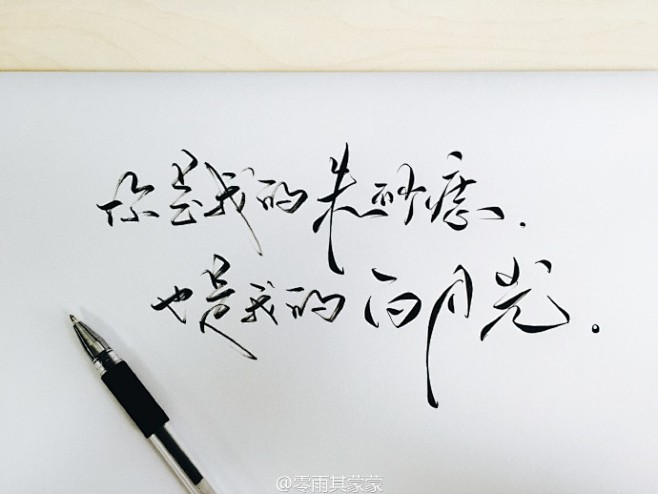 你是我的朱砂痣.
也是我的白月光.
@零雨其蒙蒙